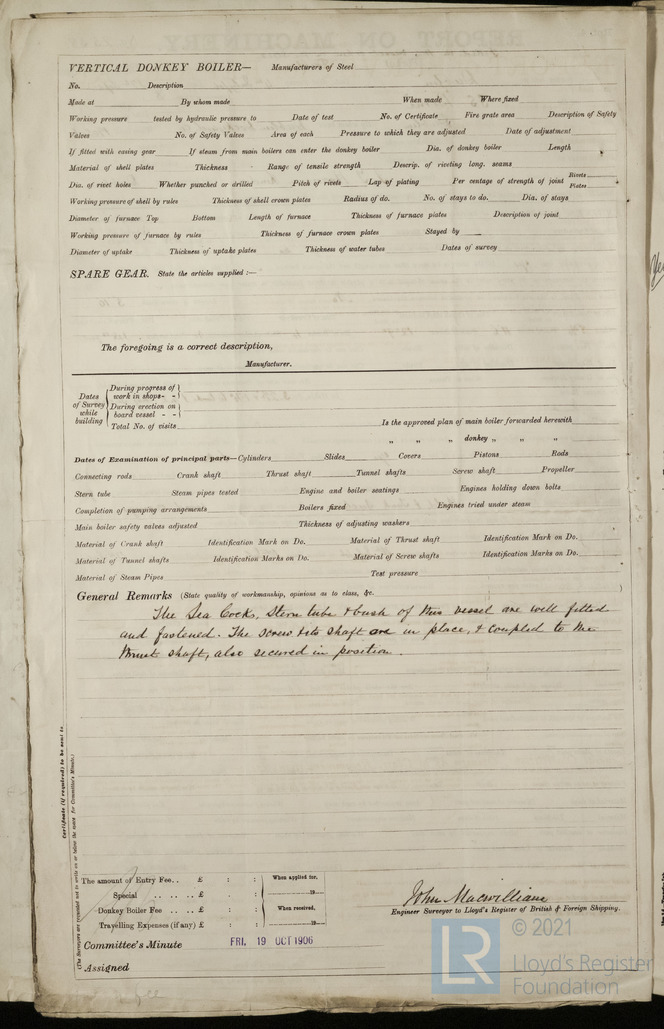 VERTICAL DONKEY BOILER— Manufacturers of Steel
No. Description
Made at By whom made When made Where fixed
Working pressure tested by hydraulic pressure to Date of test No. of Certificate Fire grate area Description of Safety
Valves No. of Safety Valves Area of each Pressure to which they are adjusted Date of adjustment
If fitted with easing gear If steam from main boilers can enter the donkey boiler Dia. of donkey boiler Length
Material of shell plates Thickness Range of tensile strength Descrip. of riveting long. seams
Dia. of rivet holes Whether punched or drilled Pitch of rivets Lap of plating Per centage of strength of joint Rivets
Plates
Working pressure of shell by rules Thickness of shell crown plates Radius of do. No. of stays to do. Dia. of stays
Diameter of furnace Top Bottom Length of furnace Thickness of furnace plates Description of joint
Working pressure of furnace by rules Thickness of furnace crown plates Stayed by
Diameter of uptake Thickness of uptake plates Thickness of water tubes Dates of survey
SPARE GEAR. State the articles supplied :—
The foregoing is a correct description,
Manufacturer.
Dates of Survey while building
During progress of work in shops - -
During erection on board vessel - -
Total No. of visits
Is the approved plan of main boiler forwarded herewith
" " " donkey " " "
Dates of Examination of principal parts—Cylinders Slides Covers Pistons Rods
Connecting rods Crank shaft Thrust shaft Tunnel shafts Screw shaft Propeller
Stern tube Steam pipes tested Engine and boiler seatings Engines holding down bolts
Completion of pumping arrangements Boilers fixed Engines tried under steam
Main boiler safety valves adjusted Thickness of adjusting washers
Material of Crank shaft Identification Mark on Do. Material of Thrust shaft Identification Mark on Do.
Material of Tunnel shafts Identification Marks on Do. Material of Screw shafts Identification Marks on Do.
Material of Steam Pipes Test pressure
General Remarks (State quality of workmanship, opinions as to class, &c. )
The Sea Cocks, Stern tube & bush of this vessel are well fitted
and fastened. The screw & its shaft are in place, & coupled to the
thrust shaft, also secured in position.
Certificate (if required) to be sent to
(The Surveyors are requested not to write on or below the space for Committee's Minute.)
The amount of Entry Fee.. £ : : When applied for,
Special .. .. .. £ : : 19
Donkey Boiler Fee .. .. £ : : When received,
Travelling Expenses (if any) £ : : 19
John Macwilliam
Engineer Surveyor to Lloyd's Register of British & Foreign Shipping.
Committee's Minute FRI. 19 OCT 1906
Assigned
LR © 2021
Lloyd's Register
Foundation